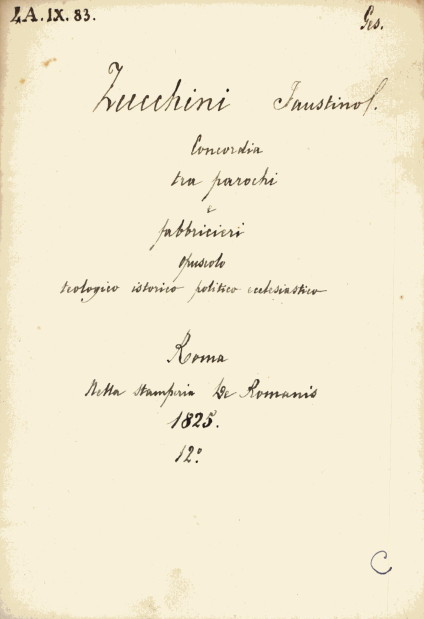 4A.IX.83.
Ges.
Zucchini Faustino f.
Concordia
tra parochi
e
fabbricieri
opuscolo
teologico istorico politico ecclesiastico
Roma
Nella stamperia De Romanis
1825.
12º
C